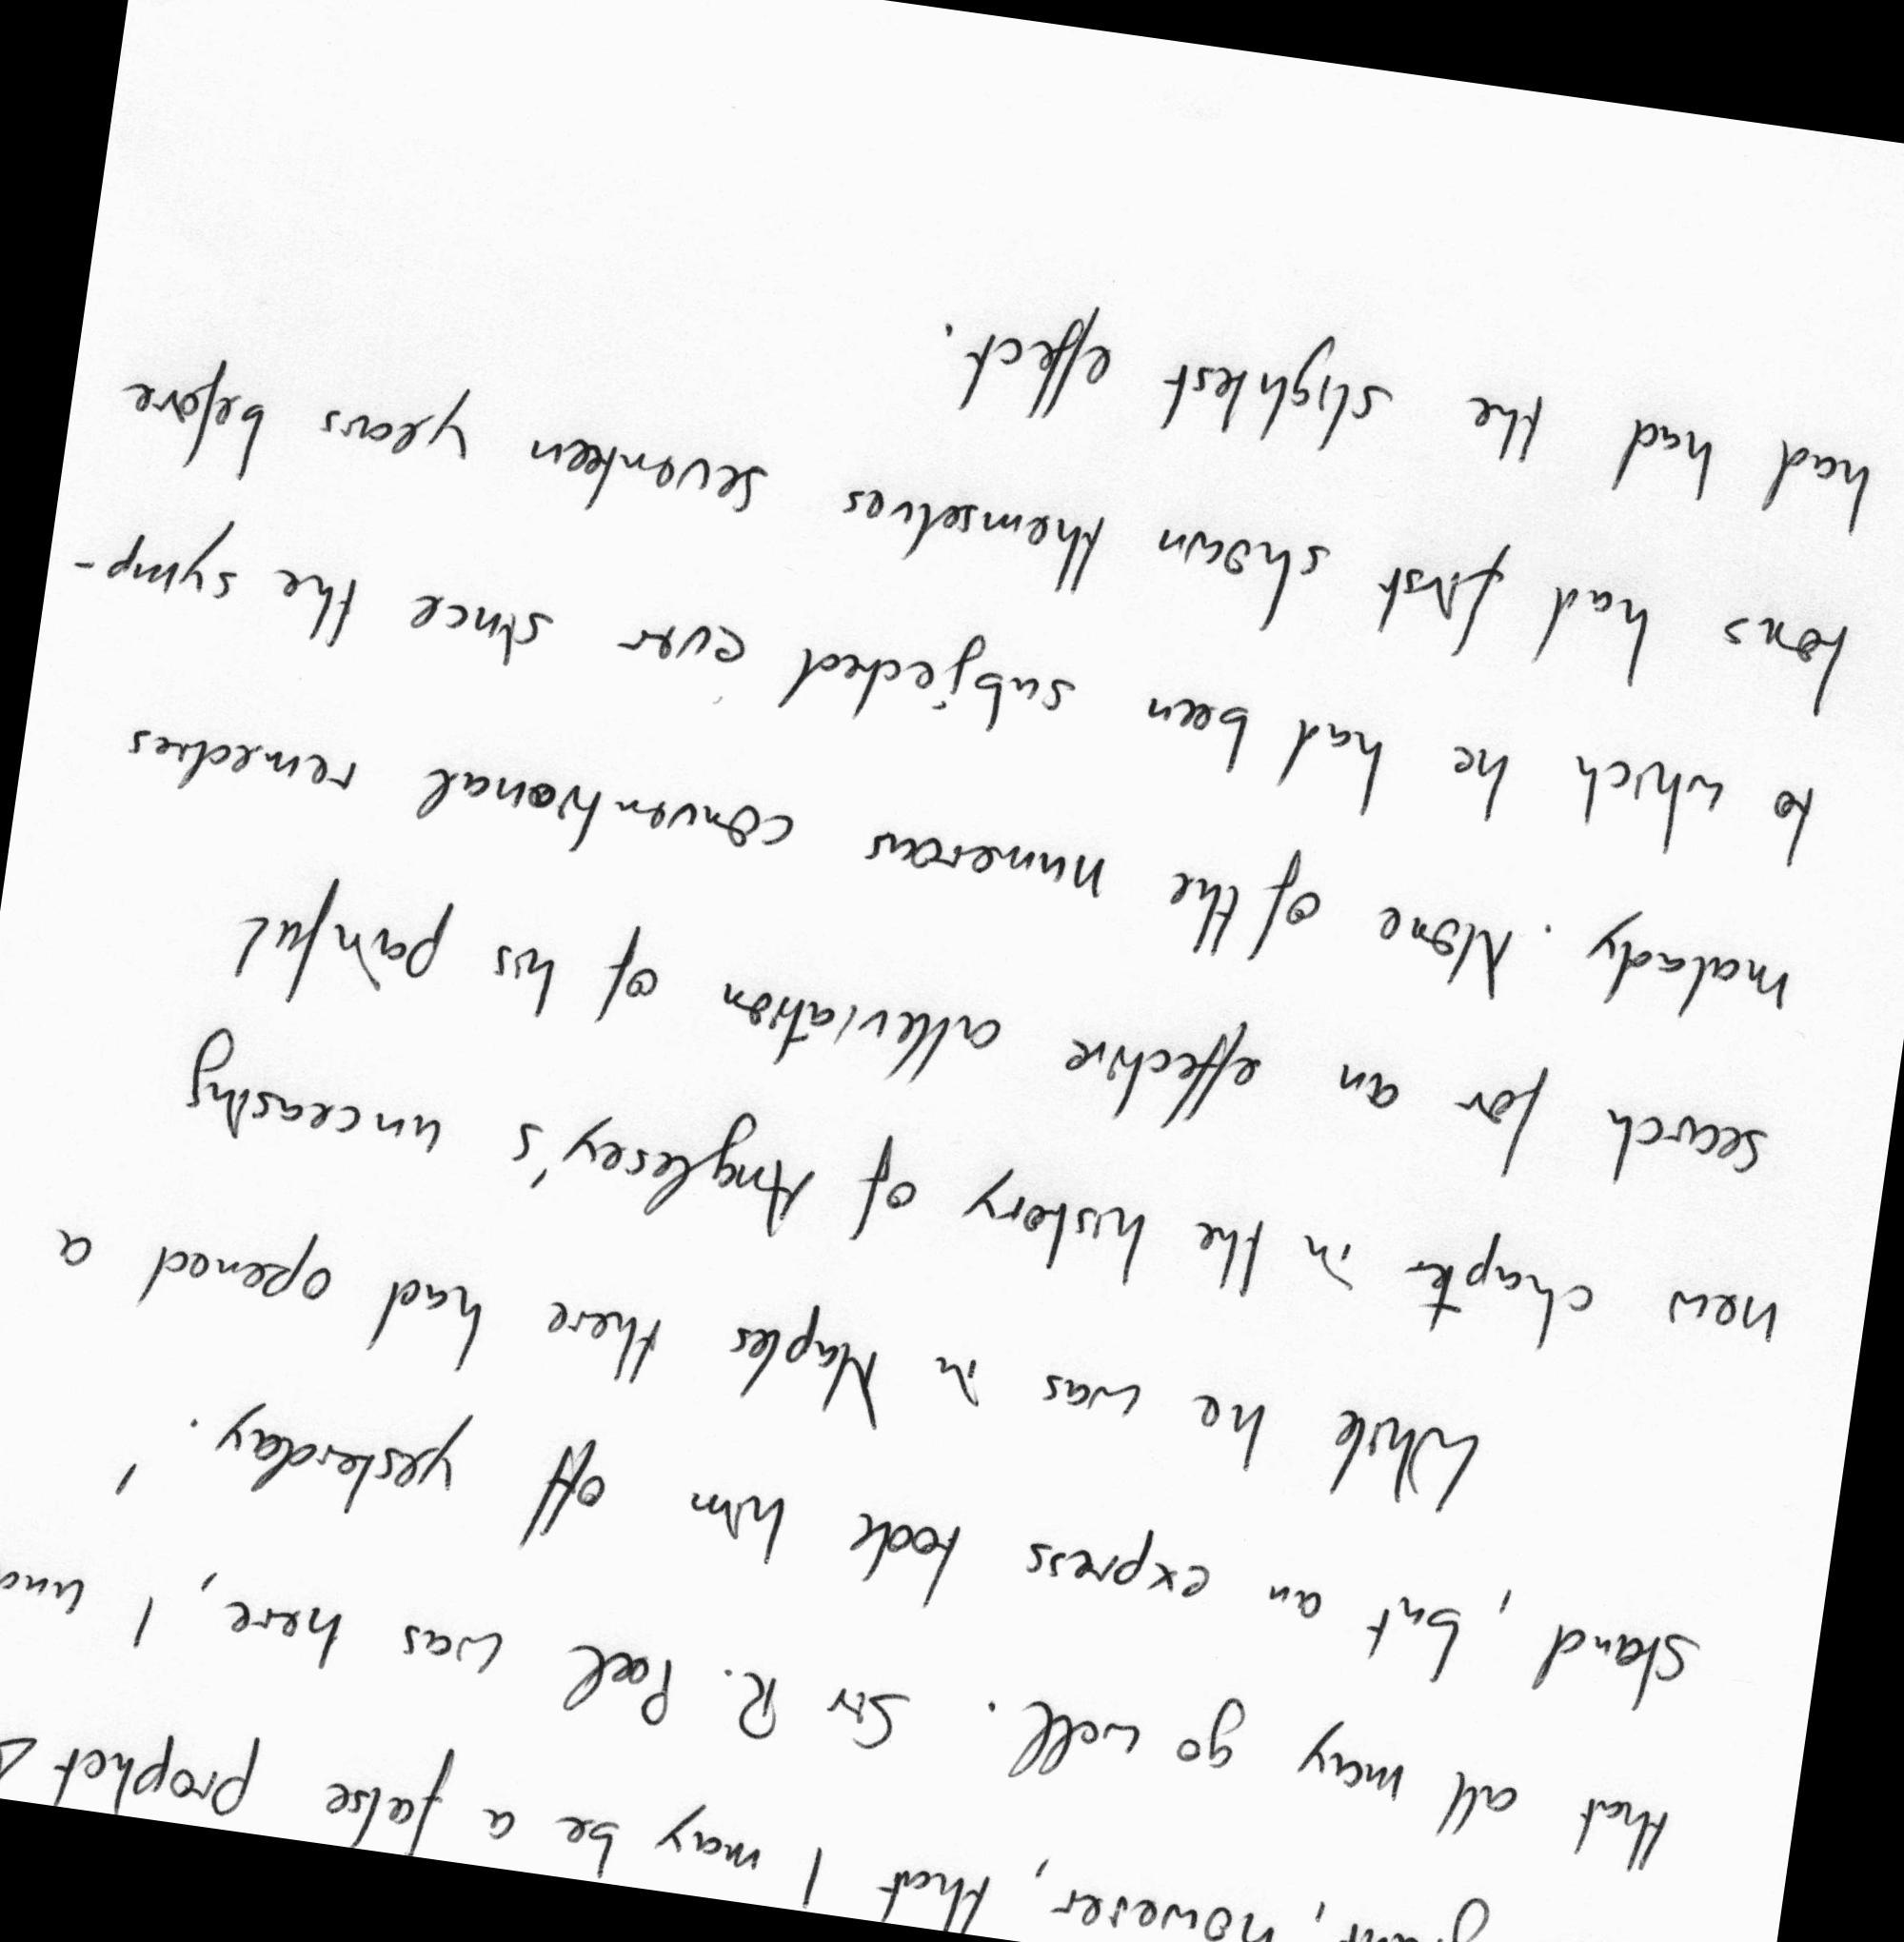 however, that I may be a false prophet &
that all may go well. Sir R. Peel was here, I
stand, but an express took him off yesterday.'
While he was in Naples there had opened a
new chapter in the history of Anglesey's unceasing
search for an effective alleviation of his painful
malady. None of the numerous conventional remedies
to which he had been subjected ever since the symp-
toms had first shown themselves seventeen years before
had had the slightest effect.